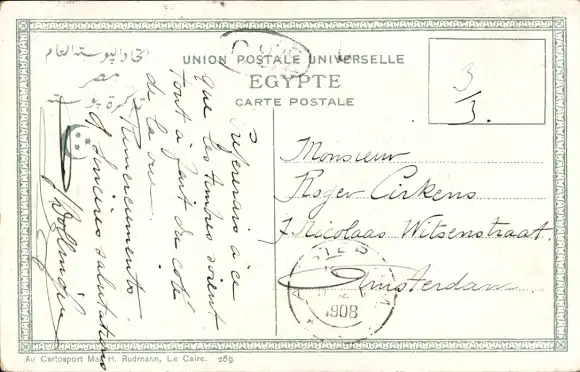 اتحاد البوسته العام
مصر
تذكرة بوسته
UNION POSTALE UNIVERSELLE
EGYPTE
CARTE POSTALE
3/3.
Prefererais à ce
que les timbres soient
tout à fait du coté
de la vue.
Remerciments
& sincères salutations
Monsieur
Roger Cirkens
7 Nicolaas Witsenstraat.
Amsterdam
1908
Au Cartosport Max H. Rudmann, Le Caire. 289.